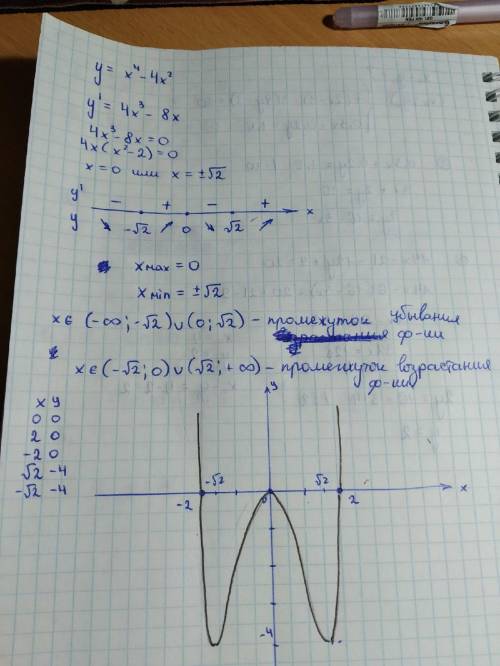 y = x⁴ - 4x²
y' = 4x³ - 8x
4x³ - 8x = 0
4x(x² - 2) = 0
x = 0 или x = ±√2
y' - + - +
y -√2 0 √2 x
x max = 0
x min = ±√2
x ∈ (-∞; -√2) ∪ (0; √2) - промежуток убывания
ф-ии
x ∈ (-√2; 0) ∪ (√2; +∞) - промежуток возрастания
ф-ии
x y
0 0
2 0
-2 0
√2 -4
-√2 -4
y
-√2 √2
-2 0 2 x
-4